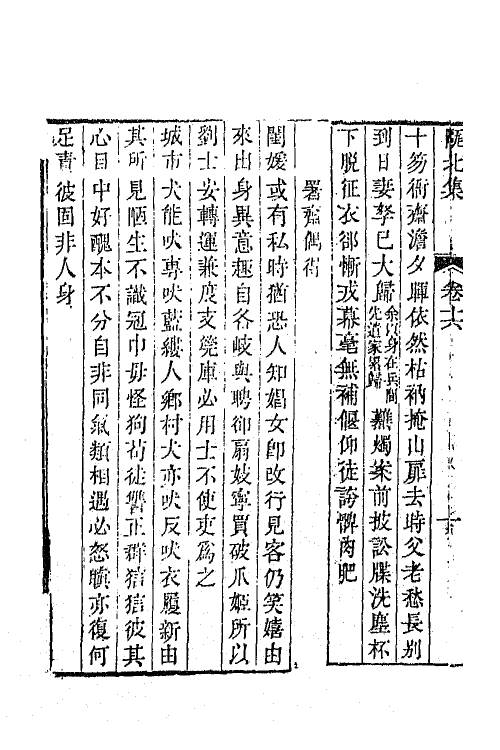 甌北集 卷十六
十笏衙齋澹夕暉依然枯衲掩山扉去時父老愁長別
到日妻孥已大歸余以身在兵間先遣家累歸 蠟燭案前披訟牒洗塵杯
下脫征衣卻慚戎幕毫無補偃仰徒誇髀肉肥
署齋偶得
閨媛或有私時猶恐人知娼女卽改行見客仍笑嬉由
來出身異意趣自各岐與聘卻扇妓寧買破爪姬所以
劉士安轉運兼度支筦庫必用士不使吏為之
城市犬能吠專吠藍縷人鄉村犬亦吠反吠衣履新由
其所見陋生不識冠巾毋怪狗苟徒讐正群狺狺彼其
心目中好醜本不分自非同氣類相遇必怒嗔亦復何
足責彼固非人身